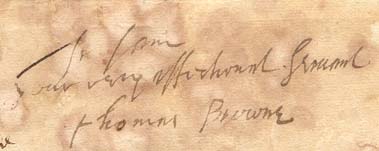 Sr I am
Your very affectionat Servant
Thomas Browne